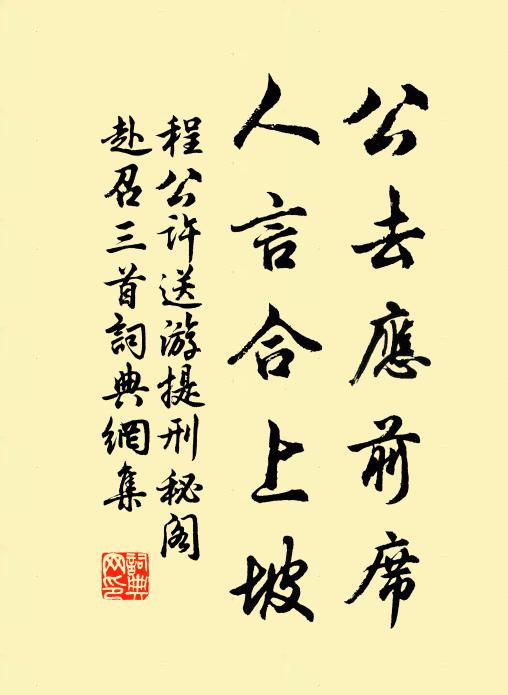 公去應前席
人言合上坡
程公許送游提刑秘阁
赴召三首詞典網集
詞典
网印